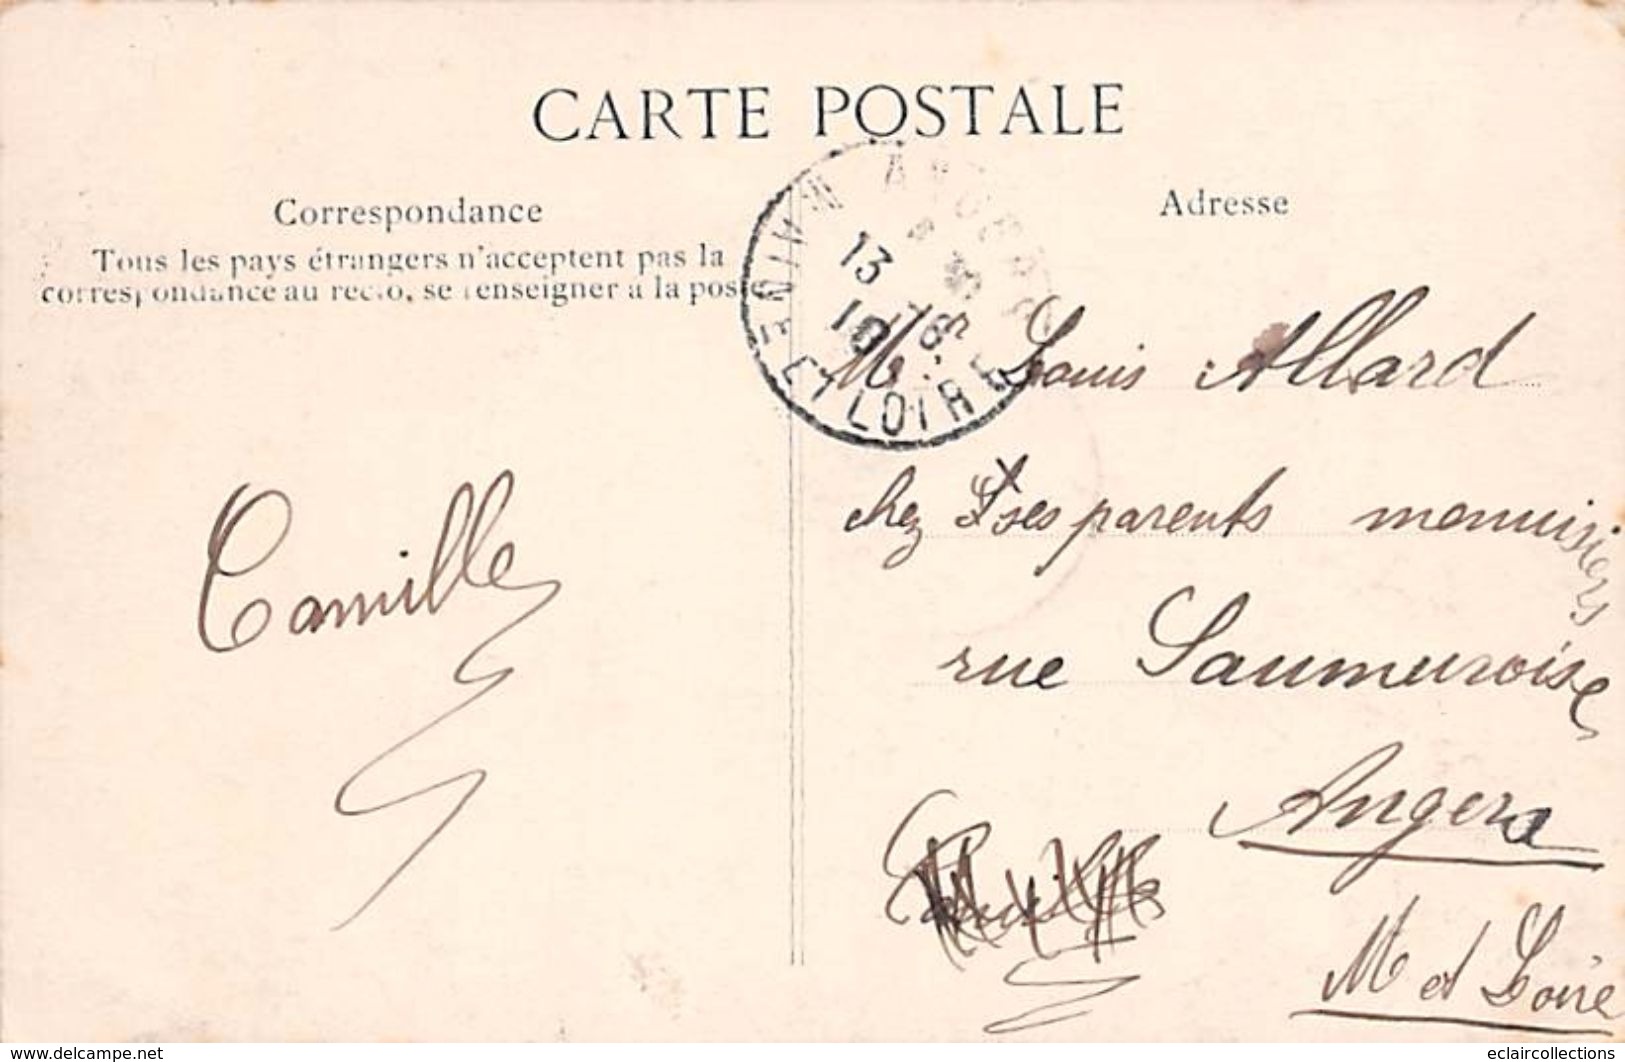 CARTE POSTALE
Correspondance
Tous les pays étrangers n'acceptent pas la
correspondance au recto, se renseigner à la poste
Camille
Adresse
13 - 6
10
MAINE ET LOIRE
Mr Louis Allard
chez ses parents menuisiers
rue Saumuroise
Angers
M et Loire
www.delcampe.net
eclaircollections